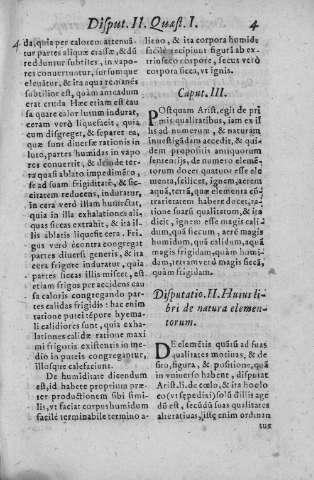 Disput. II. Quæst. I. 4
da, quia per calorem attenuã
tur partes aliquæ crassæ, & dũ
redduntur subtiles, in vapo-
res conuertuntur, sursumque
eleuãtur, & ita aqua remanẽs
subtilior est, quàm antea cum
erat cruda. Hæc etiam est cau
sa quare calor lutum indurat,
ceram verò liquefacit, quia
cum disgreget, & separet ea,
quæ sunt diuersæ rationis in
luto, partes humidas in vapo
res conuertit, & deinde ter-
ra quasi ablato impedimẽto,
se ad suam frigiditatẽ, & sic-
citatem reducens, induratur,
in cera verò illam humectat,
quia in illa exhalationes ali
quas siccas extrahit, & ita il-
lis ablatis liquescit cera. Frigi
gus verò econtra congregat
partes diuersi generis, & ita
cera frigore induratur, quia
partes siccas illis miscet, est
etiam frigus per accidens cau
sa caloris congregando par-
tes calidas frigidis: hac enim
ratione putei tẽpore hyema-
li calidiores sunt, quia exha-
lationes calidæ ratione maxi
mi frigoris existentis in me-
dio in puteis congregantur,
illosque calefaciunt.
De humiditate dicendum
est, id habere proprium præ
ter productionem sibi simi-
lis, vt faciat corpus humidum
facilè terminabile termino a-
lieno, & ita corpora humida
facilè recipiunt figurã ab ex-
trinseco corpore, secus verò
corpora sicca, vt ignis.
Caput. III.
POstquam Arist. egit de pri
mis qualitatibus, iam ex il
lis ad numerum, & naturam
inuestigãdam accedit, & qui-
dem propositis antiquorum
sententijs, de numero elemẽ-
torum docet quatuor esse ele
menta, scilicet, ignem, aerem
aquã, terrã, quæ elementa cõ-
trarietatem habere docet, ra-
tione suarũ qualitatum, & ita
dicit, ignem esse magis cali-
dum, quã siccum, aerẽ magis
humidum, quã calidum, aquã
magis frigidam, quàm humi-
dam, terram verò magis siccã,
quàm frigidam.
Disputatio. II. Huius li-
bri de natura elemen-
torum.
DE elemẽtis quũ ad suas
qualitates motiuas, & de
situ, figura, & positione, quã
in vniuerso habent, disputat
Arist. li. de cœlo, & ita hoc lo
co (vt sæpe dixi) solũ dissit age
dũ est, secũdũ suas qualitates
alteratiuas, ijsq; enim ordinan
tur